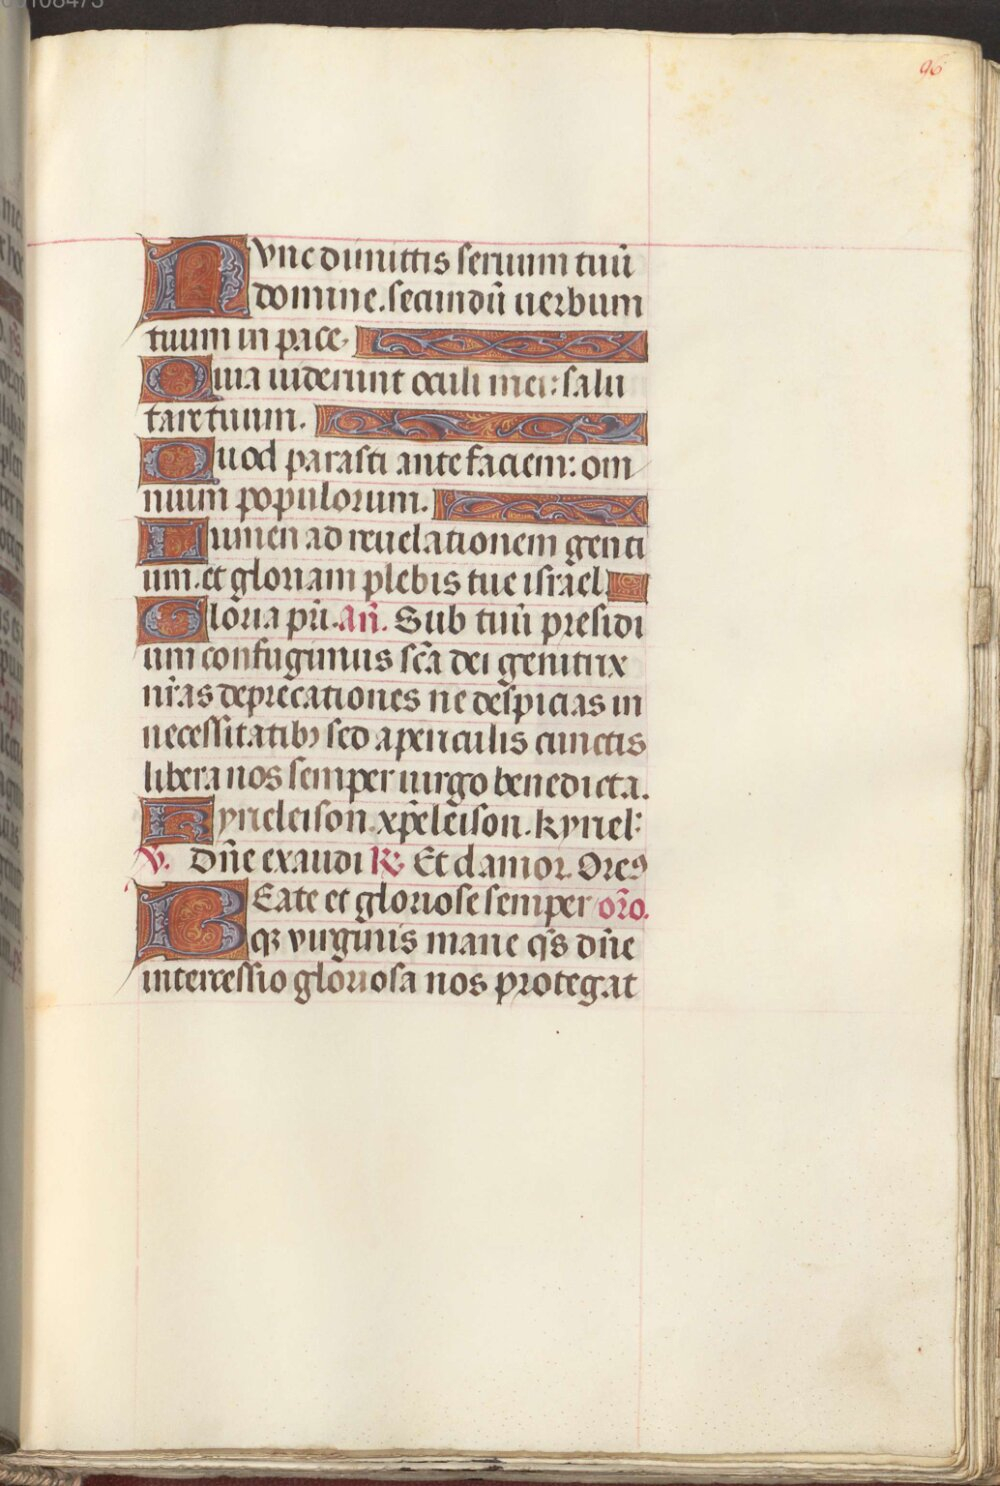 00108473
96
Nvnc dimittis seruum tuū
domine. secundū uerbum
tuum in pace.
Quia uiderunt oculi mei: salu
tare tuum.
Quod parasti ante faciem: om
nium populorum.
Lumen ad reuelationem genti
um. et gloriam plebis tue israel.
Gloria pr̄i. Añ. Sub tuū presidi
um confugimus sc̄a dei genitrix
nr̄as deprecationes ne despicias in
necessitatibꝫ sed a periculis cunctis
libera nos semper uirgo benedicta.
Kyrieleison. xp̄eleison. kyriel:
V. Dn̄e exaudi ℟. Et clamor. Oremꝰ
BEate et gloriose semper or̄o.
qꝫ virginis marie qs̄ dn̄e
intercessio gloriosa nos protegat